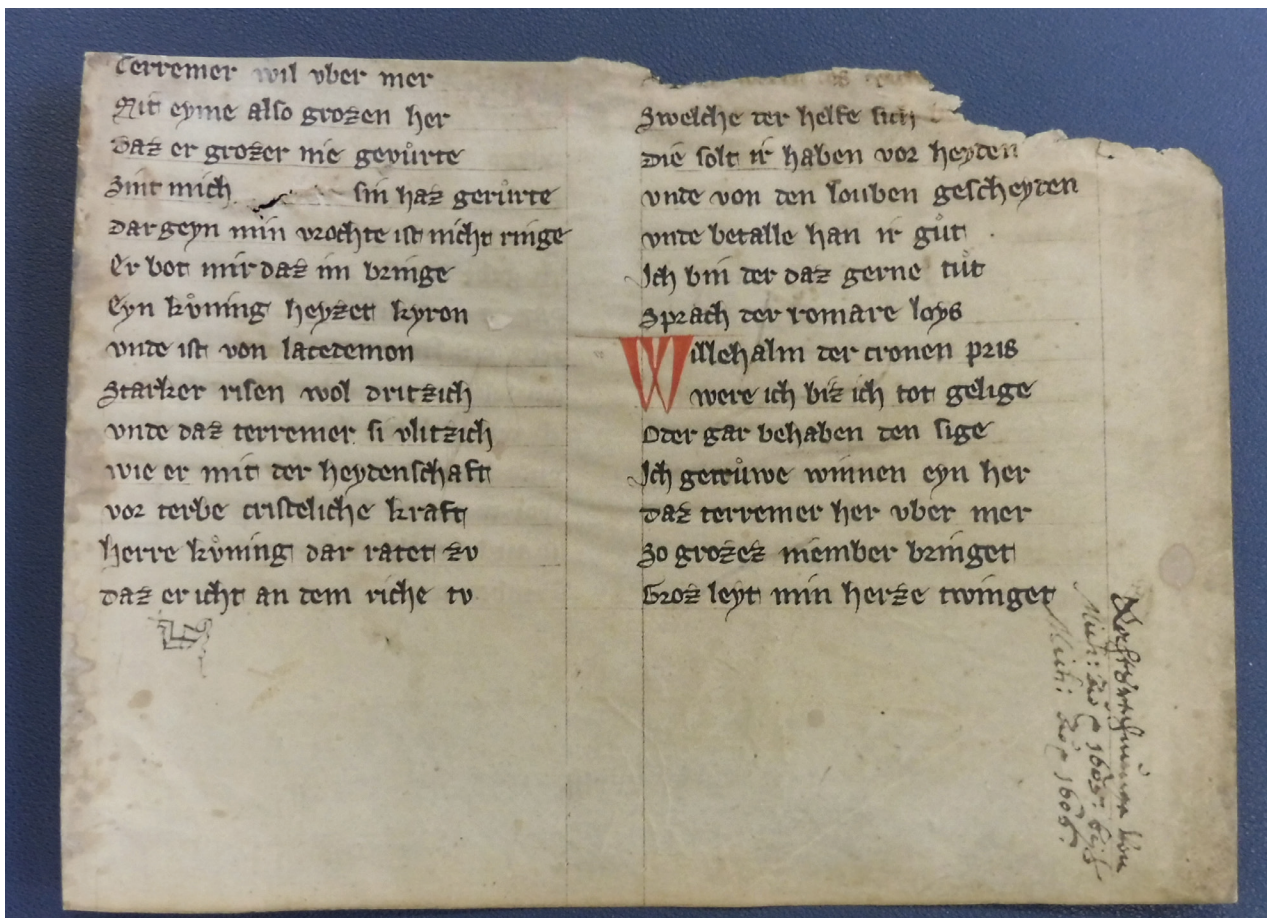 Terremer wil vber mer
Mit eyme also grozen her
Daz er grozer nie gevůrte
Zint mich sin haz gerůrte
Dar geyn min vrochte ist nicht ringe
Er bot mir daz im bringe
Eyn kůning heyzet kyron
vnde ist von lacedemon
Starker risen wol dritzich
vnde daz terremer si vlitzich
wie er mit der heydenschaft
vor terbe cristeliche kraft
herre kůning dar ratet zv
daz er icht an dem riche tv
Swelche der helfe sich
Die solt ir haben vor heyden
vnde von den louben gescheyden
vnde betalle han ir gůt
Ich bin der daz gerne tůt
Sprach der romare loys
Willehalm der cronen pris
were ich biz ich tot gelige
Oder gar behaben den sige
Ich getrůwe winnen eyn her
daz terremer her vber mer
So grozez niember bringet
Groz leyt min herze twinget
1605
1606